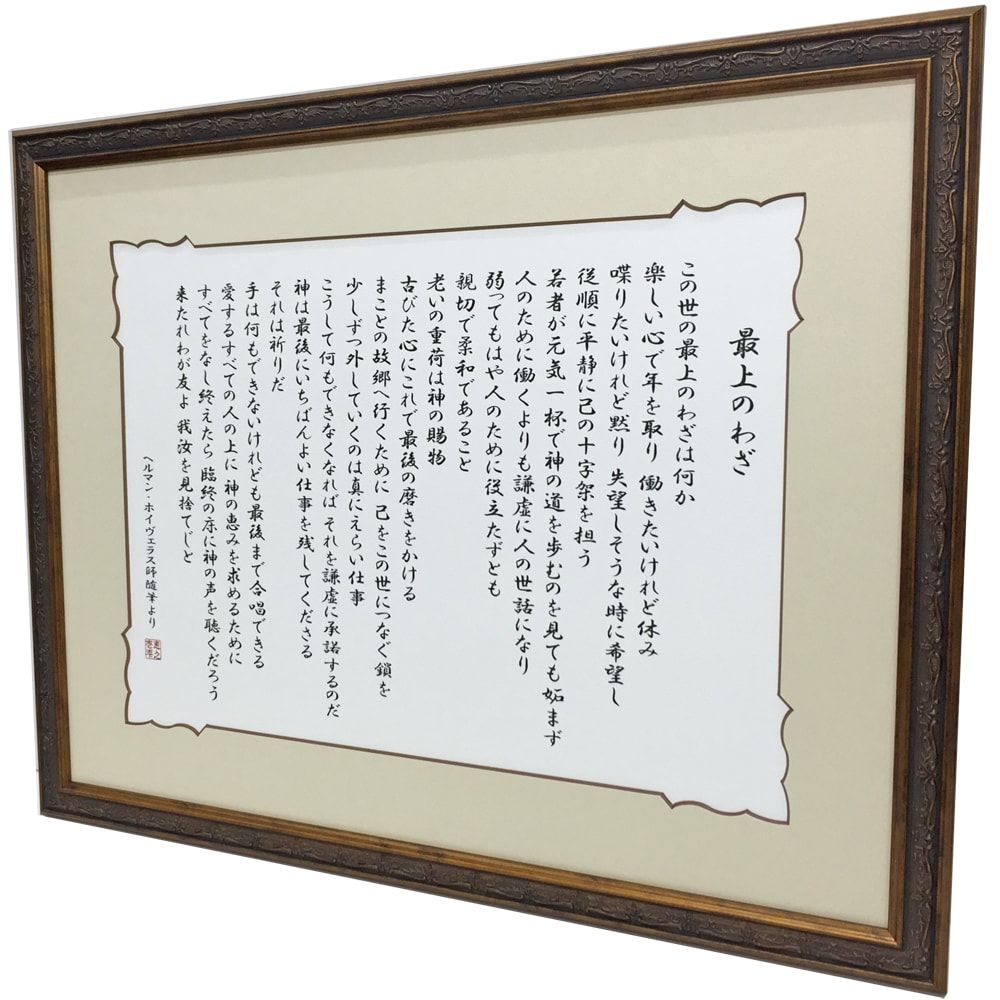 最上のわざ
この世の最上のわざは何か
楽しい心で年を取り 働きたいけれど休み
喋りたいけれど黙り 失望しそうな時に希望し
従順に平静に己の十字架を担う
若者が元気一杯で神の道を歩むのを見ても妬まず
人のために働くよりも謙虚に人の世話になり
弱ってもはや人のために役立たずとも
親切で柔和であること
老いの重荷は神の賜物
古びた心にこれで最後の磨きをかける
まことの故郷へ行くために 己をこの世につなぐ鎖を
少しずつ外していくのは真にえらい仕事
こうして何もできなくなれば それを謙虚に承諾するのだ
神は最後にいちばんよい仕事を残してくださる
それは祈りだ
手は何もできないけれども最後まで合唱できる
愛するすべての人の上に神の恵みを求めるために
すべてをなし終えたら 臨終の床に神の声を聴くだろう
来たれわが友よ 我汝を見捨てじと
ヘルマン・ホイヴェラス師随筆より